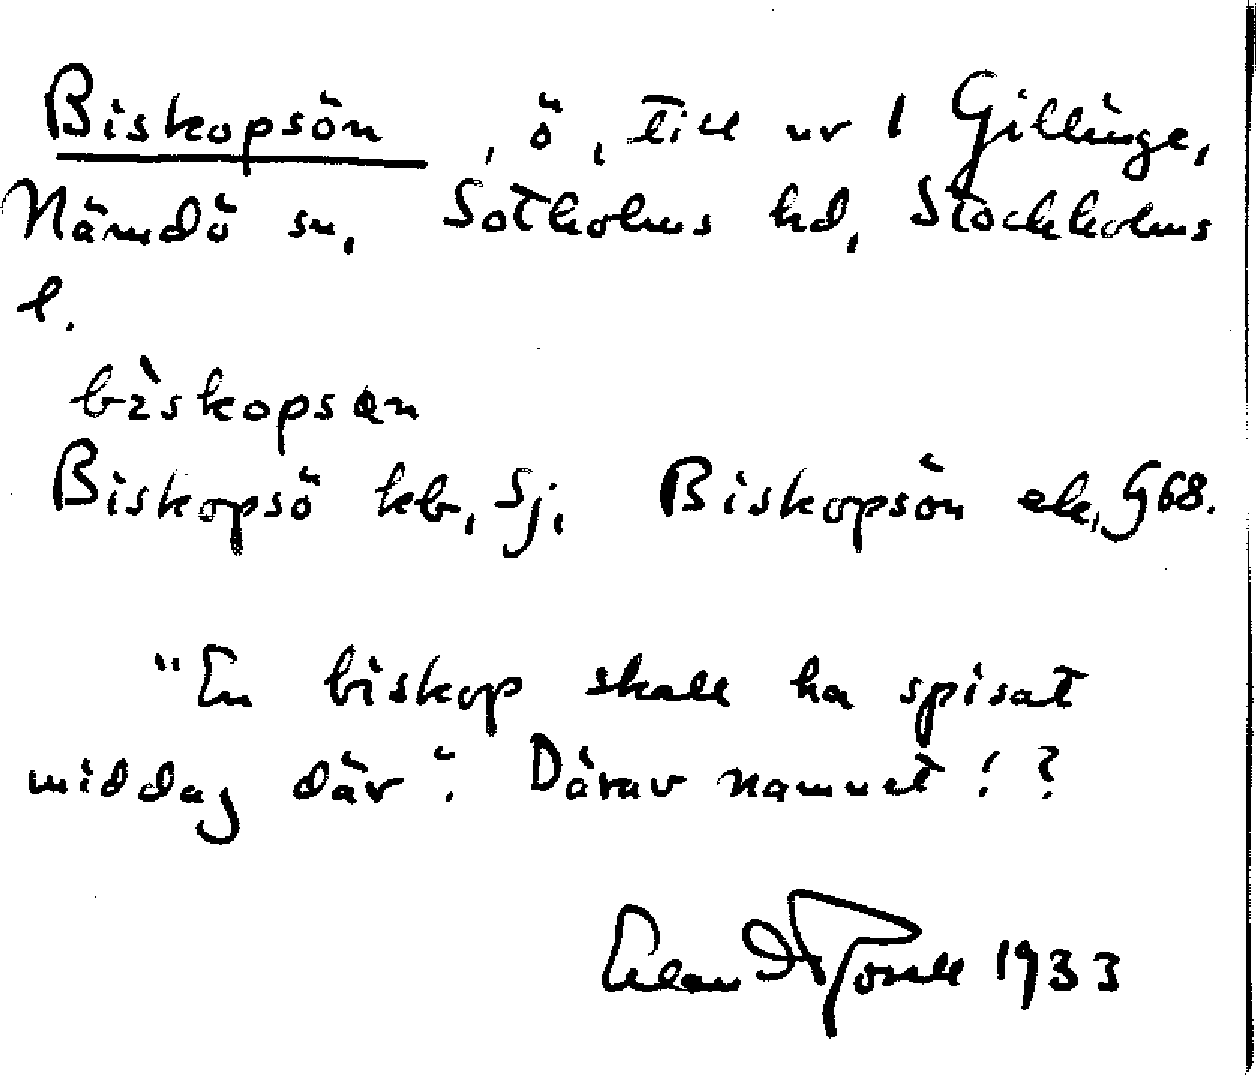 Biskopsön, ö, till nr 1 Gillinge,
Nämdö sn, Sotholms hd, Stockholms
l.
bìskopsαn
Biskopsö kb, Sj, Biskopsön ek, G68.
"En biskop skall ha spisat
middag där". Därav namnet!?
Erland 1933